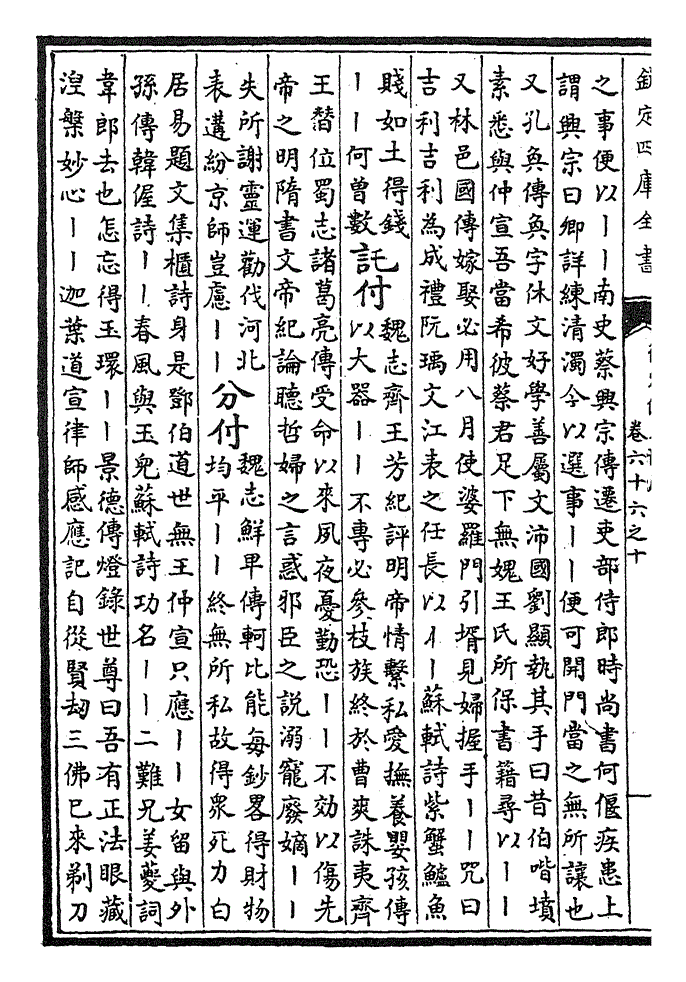 欽定四庫全書
卷六十六之十
之事便以丨丨南史蔡興宗傳遷吏部侍郎時尚書何偃疾患上
謂興宗曰卿詳練清濁今以選事丨丨便可開門當之無所讓也
又孔奐傳奐字休文好學善屬文沛國劉顯執其手曰昔伯喈墳
素悉與仲宣吾當希彼蔡君足下無媿王氏所保書籍尋以丨丨
又林邑國傳嫁娶必用八月使婆羅門引壻見婦握手丨丨咒曰
吉利吉利為成禮阮瑀文江表之任長以丨丨蘇軾詩紫蟹鱸魚
賤如土得錢
丨丨何曾數
託付
魏志齊王芳紀評明帝情繫私愛撫養嬰孩傳
以大器丨丨不專必參枝族終於曹爽誅夷齊
王替位蜀志諸葛亮傳受命以來夙夜憂勤恐丨丨不効以傷先
帝之明隋書文帝紀論聽哲婦之言惑邪臣之說溺寵廢嫡丨丨
失所謝靈運勸伐河北
表遘紛京師豈慮丨丨
分付
魏志鮮卑傳軻比能每鈔畧得財物
均平丨丨終無所私故得衆死力白
居易題文集櫃詩身是鄧伯道世無王仲宣只應丨丨女留與外
孫傳韓偓詩丨丨春風與玉兒蘇軾詩功名丨丨二難兄姜夔詞
韋郎去也怎忘得玉環丨丨景德傳燈錄世尊曰吾有正法眼藏
湼槃妙心丨丨迦葉道宣律師感應記自從賢劫三佛已來剃刀